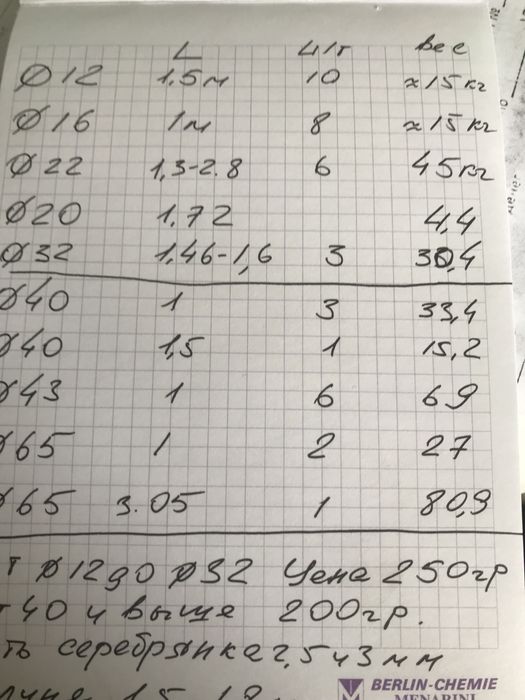 L шт вес
Ø12 1,5м 10 ≈15кг
Ø16 1м 8 ≈15кг
Ø22 1,3-2.8 6 45кг
Ø20 1.72 4,4
Ø32 1.46-1,6 3 30,4
Ø40 1 3 33,4
Ø40 1,5 1 15,2
Ø43 1 6 69
Ø65 1 2 27
Ø65 3.05 1 80,9
т Ø12 до Ø32 Цена 250гр
т 40 и выше 200гр.
ть серебрянка 2,5 и 3 мм
1,5
BERLIN-CHEMIE
MENARINI